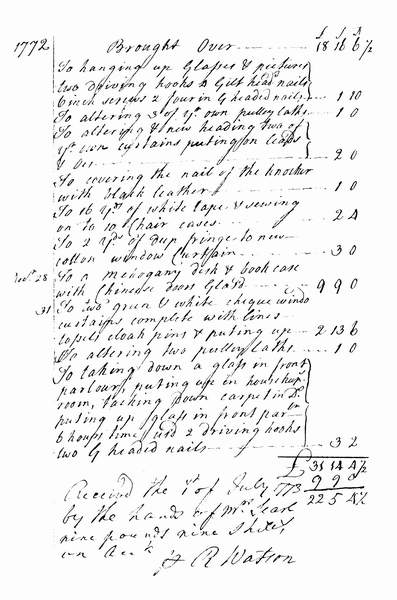 £ s d
1772 Brought Over 18 16 6½
To hanging up Glasses & pictures
two driving hooks & Gilt head nails
6 inch screws 2 four in G headed nails 1 10
To altering 3 of yr own pulley laths 1 0
To altering & new heading two of
yr own curtains puting on leads
& 2 0
To covering the nail of the knocker
with black leather 1 0
To 16 yds of white tape & sewing
on to 10 Chair cases 2 4
To 2 yds of deep fringe to new
cotton window Curtain 3 0
28 To a mehogany desk & bookcase
with Chinese doors Glasd 9 9 0
31 To two green & white cheque windo
curtains complete with lines
tossels cloak pins & puting up 2 13 6
To altering two pulley laths 1 0
To taking down a glass in front
parlour, puting up in housekeps
room, tacking down carpet in Do
puting up glass in front parlr
6 hours time, usd 2 driving hooks
two G headed nails 3 2
£ 31 14 4½
9 9 0
22 5 4½
Received the 1st of July 1773
by the hands of Mrs Searl
nine pounds nine Shills
on Acct
R Watson